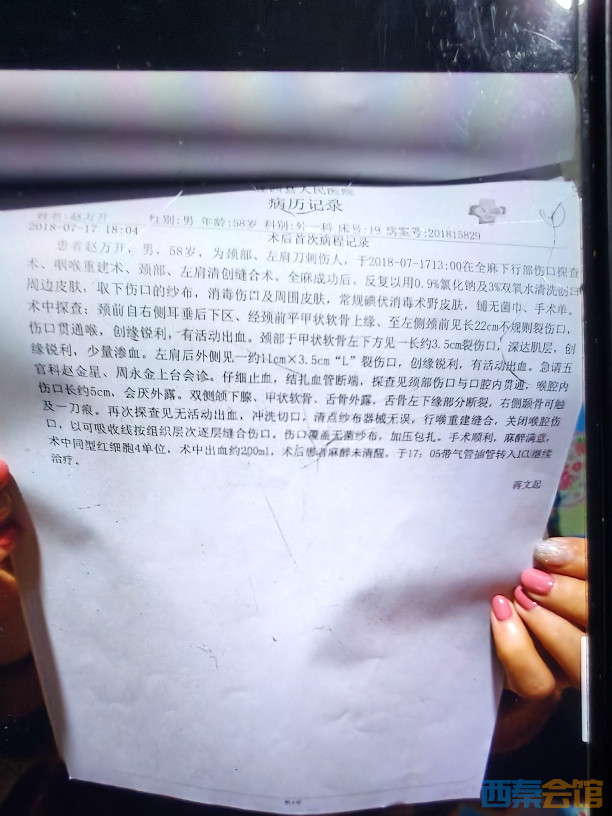 县人民医院
病历记录
姓名:赵万升 性别:男 年龄:58岁 科别:外一科 床号:19 病案号:201815829
2018-07-17 18:04 术后首次病程记录
患者赵万升,男,58岁,为颈部、左肩刀刺伤人,于2018-07-1713:00在全麻下行部伤口探查
术、咽喉重建术、颈部、左肩清创缝合术。全麻成功后。反复以用0.9%氯化钠及3%双氧水清洗创口
周边皮肤,取下伤口的纱布,消毒伤口及周围皮肤,常规碘伏消毒术野皮肤,铺无菌巾、手术单。
术中探查:颈前自右侧耳垂后下区、经颈前平甲状软骨上缘、至左侧颈前见长22cm不规则裂伤口,
伤口贯通喉,创缘锐利,有活动出血。颈部于甲状软骨左下方见一长约3.5cm裂伤口,深达肌层,创
缘锐利,少量渗血。左肩后外侧见一约11cm×3.5cm“L”裂伤口,创缘锐利,有活动出血。急请五
官科赵金星、周永金上台会诊。仔细止血,结扎血管断端,探查见颈部伤口与口腔内贯通,喉腔内
伤口长约5cm,会厌外露,双侧颌下腺、甲状软骨、舌骨外露,舌骨左下缘部分断裂,右侧颞骨可触
及一刀痕。再次探查见无活动出血,冲洗切口,清点纱布器械无误,行喉重建缝合,关闭喉腔伤
口,以可吸收线按组织层次逐层缝合伤口。伤口覆盖无菌纱布,加压包扎。手术顺利,麻醉满意,
术中同型红细胞4单位,术中出血约200ml,术后患者麻醉未清醒。于17:05带气管插管转入ICU继续
治疗。
蒋文起
西秦会馆